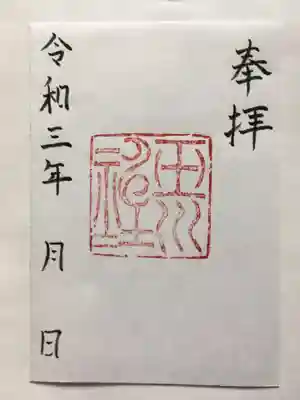 奉拝
令和三年 月 日